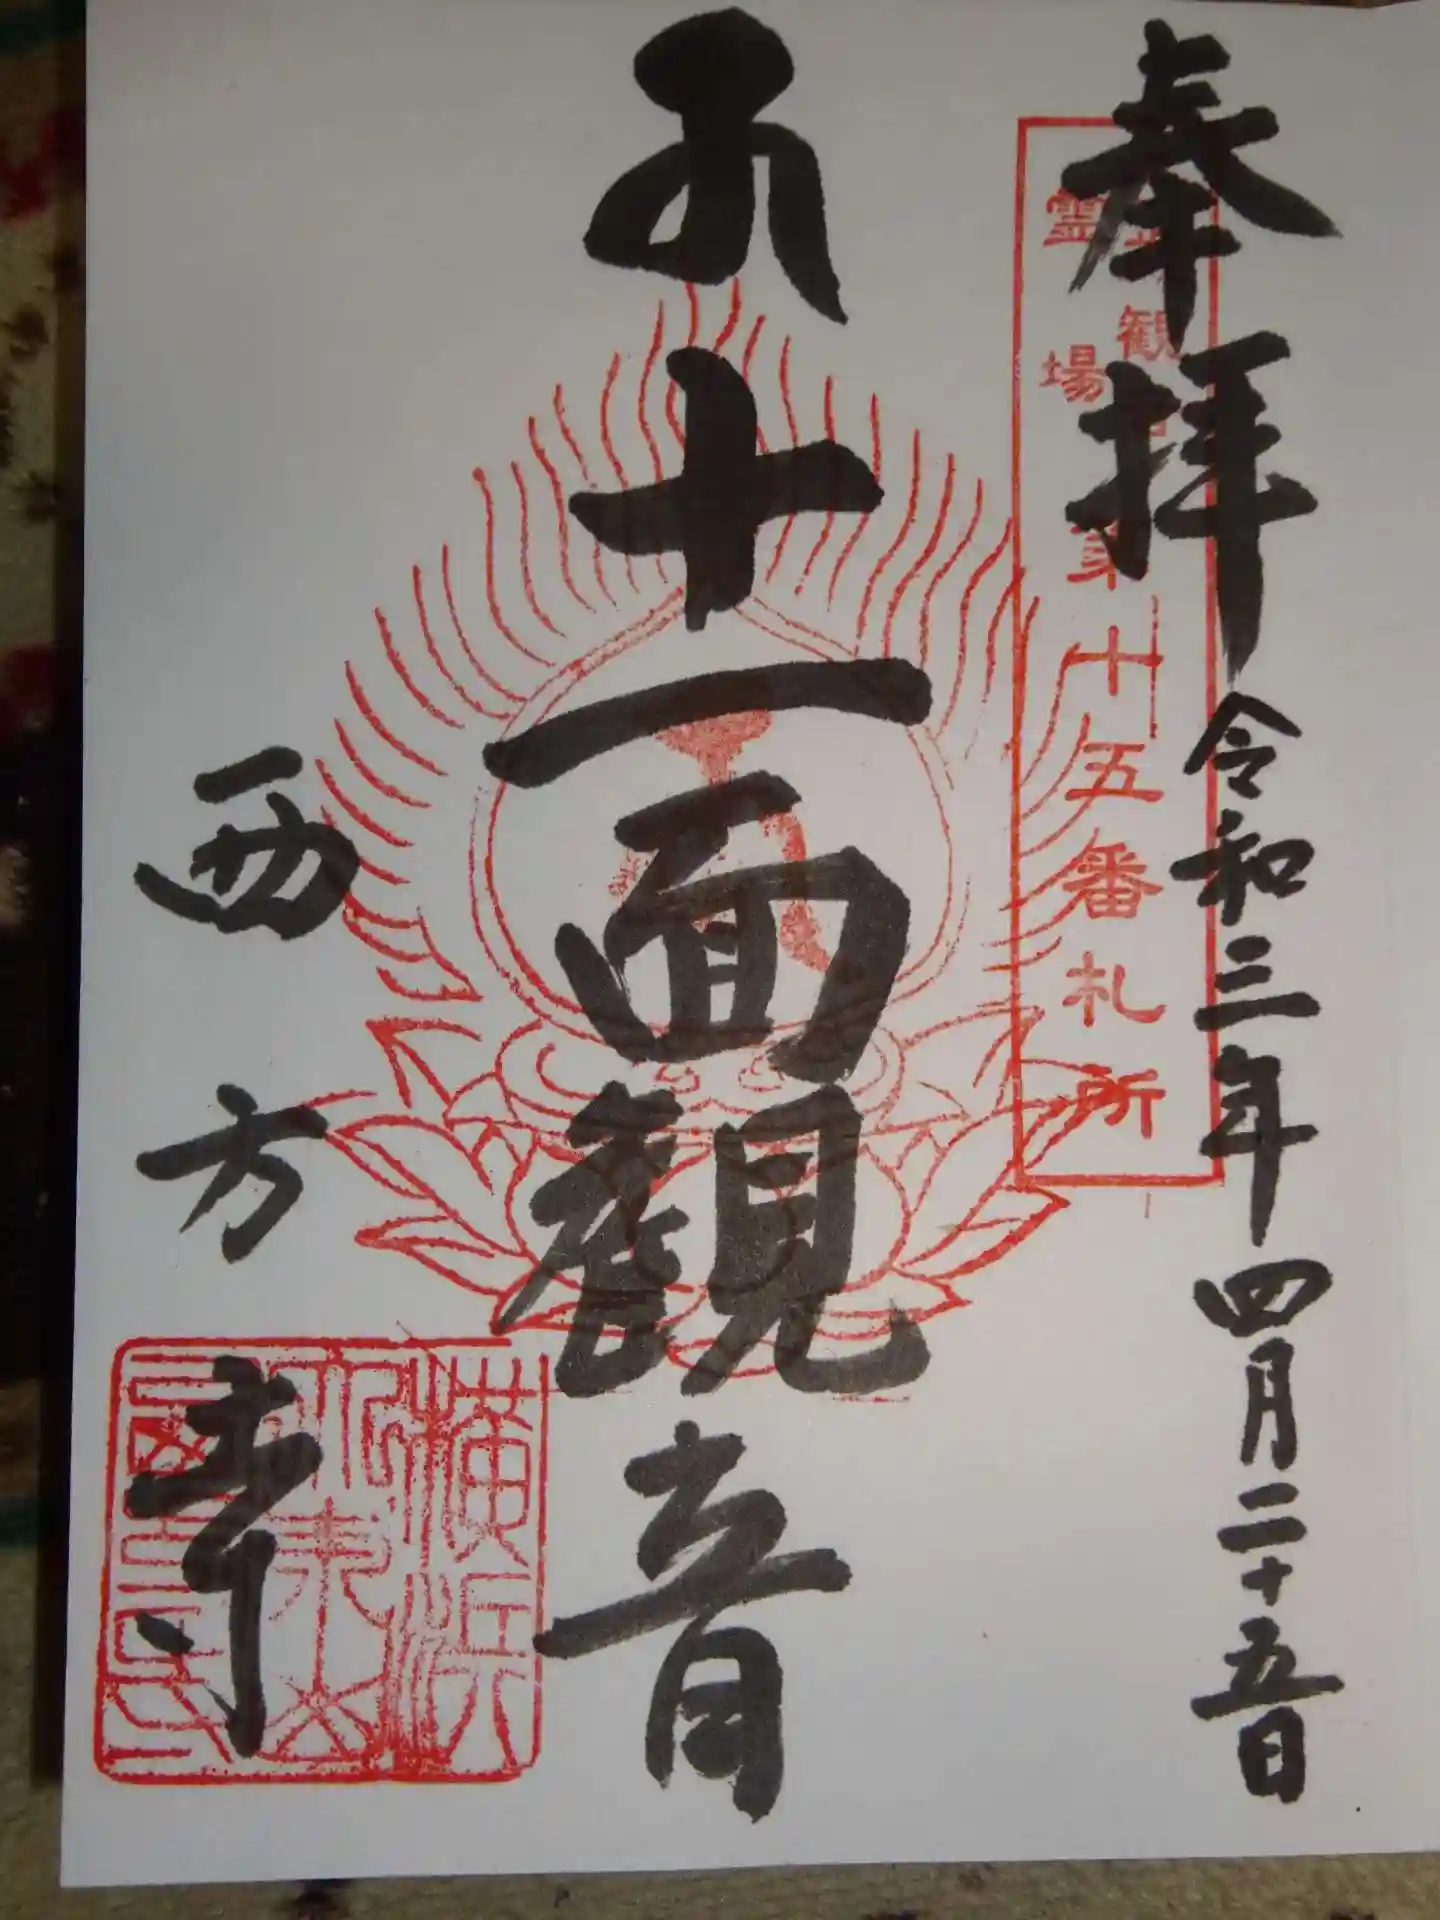 奉拝 令和三年四月二十五日
観
霊場
第十五番札所
十一面観音
西方寺
横浜